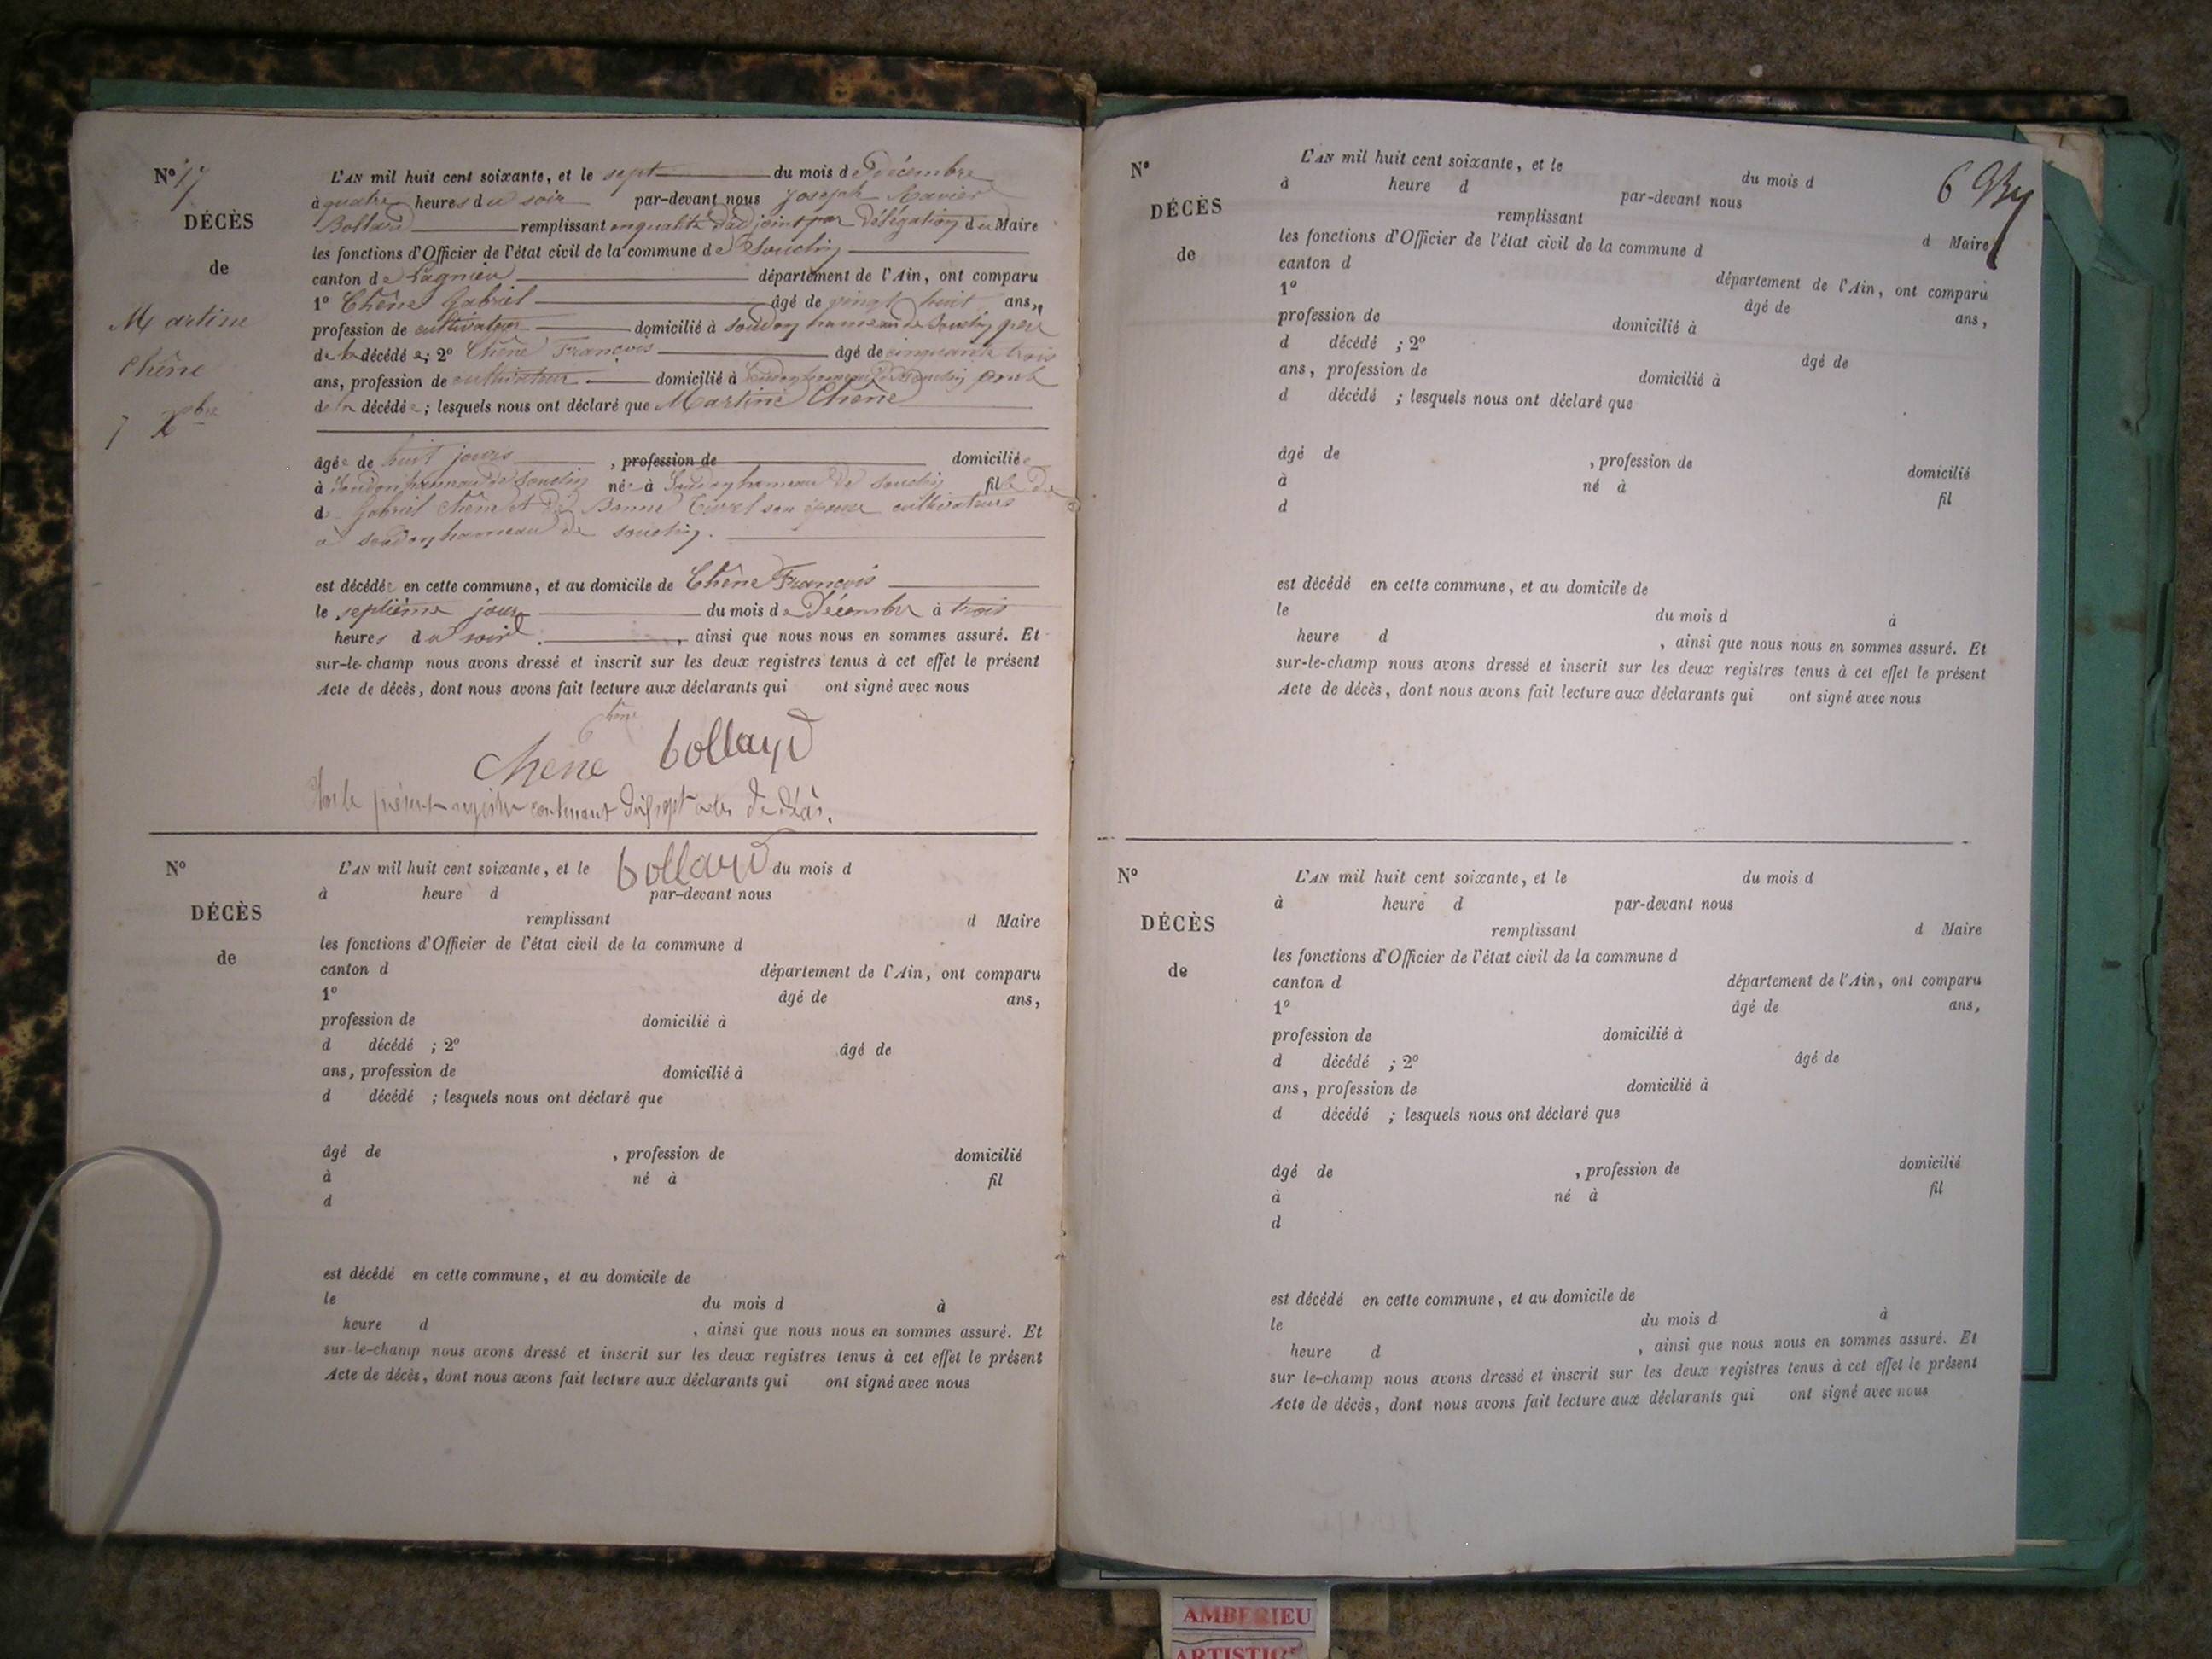 N° 17
DÉCÈS
de
Martine
Chêne
7 Xbre
L'AN mil huit cent soixante, et le sept du mois de Décembre
à quatre heures du soir par-devant nous Joseph Xavier
Bollard remplissant en qualité d'adjoint par délégation du Maire
les fonctions d'Officier de l'état civil de la commune de Souclin
canton de Lagnieu département de l'Ain, ont comparu
1° Chêne Gabriel âgé de vingt huit ans,
profession de cultivateur domicilié à Soudon hameau de Souclin père
de la décédée; 2° Chêne François âgé de cinquante trois
ans, profession de cultivateur domicilié à Soudon hameau de Souclin
de la décédée; lesquels nous ont déclaré que Martine Chêne
âgée de huit jours , profession de domiciliée
à Soudon hameau de Souclin née à Soudon hameau de Souclin fille de
d Gabriel Chêne et de son épouse cultivateurs
à Soudon hameau de Souclin.
est décédée en cette commune, et au domicile de Chêne François
le septième jour du mois de Décembre à trois
heures du soir , ainsi que nous nous en sommes assuré. Et
sur-le-champ nous avons dressé et inscrit sur les deux registres tenus à cet effet le présent
Acte de décès, dont nous avons fait lecture aux déclarants qui ont signé avec nous
Chêne bollard
Clos le présent registre contenant dix sept actes de décès.
bollard
N°
DÉCÈS
de
L'AN mil huit cent soixante, et le du mois d
à heure d par-devant nous
remplissant d Maire
les fonctions d'Officier de l'état civil de la commune d
canton d département de l'Ain, ont comparu
1° âgé de ans,
profession de domicilié à
d décédé ; 2° âgé de
ans, profession de domicilié à
d décédé ; lesquels nous ont déclaré que
âgé de , profession de domicilié
à né à fil
d
est décédé en cette commune, et au domicile de
le du mois d à
heure d , ainsi que nous nous en sommes assuré. Et
sur-le-champ nous avons dressé et inscrit sur les deux registres tenus à cet effet le présent
Acte de décès, dont nous avons fait lecture aux déclarants qui ont signé avec nous
6
N°
DÉCÈS
de
L'AN mil huit cent soixante, et le du mois d
à heure d par-devant nous
remplissant d Maire
les fonctions d'Officier de l'état civil de la commune d
canton d département de l'Ain, ont comparu
1° âgé de ans,
profession de domicilié à
d décédé ; 2° âgé de
ans, profession de domicilié à
d décédé ; lesquels nous ont déclaré que
âgé de , profession de domicilié
à né à fil
d
est décédé en cette commune, et au domicile de
le du mois d à
heure d , ainsi que nous nous en sommes assuré. Et
sur-le-champ nous avons dressé et inscrit sur les deux registres tenus à cet effet le présent
Acte de décès, dont nous avons fait lecture aux déclarants qui ont signé avec nous
N°
DÉCÈS
de
L'AN mil huit cent soixante, et le du mois d
à heure d par-devant nous
remplissant d Maire
les fonctions d'Officier de l'état civil de la commune d
canton d département de l'Ain, ont comparu
1° âgé de ans,
profession de domicilié à
d décédé ; 2° âgé de
ans, profession de domicilié à
d décédé ; lesquels nous ont déclaré que
âgé de , profession de domicilié
à né à fil
d
est décédé en cette commune, et au domicile de
le du mois d à
heure d , ainsi que nous nous en sommes assuré. Et
sur le-champ nous avons dressé et inscrit sur les deux registres tenus à cet effet le présent
Acte de décès, dont nous avons fait lecture aux déclarants qui ont signé avec nous
AMBERIEU